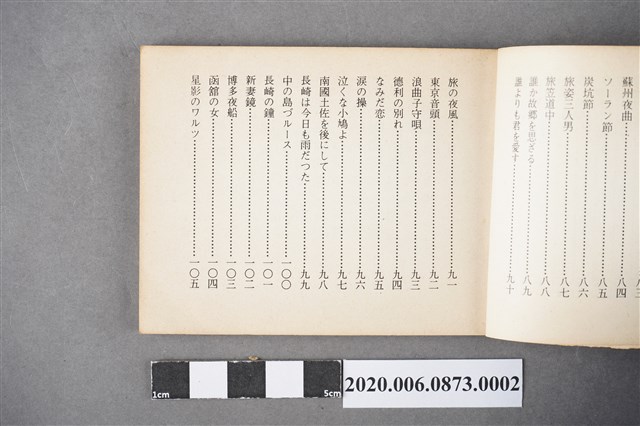 蘇州夜曲‥‥‥‥‥‥八四
ソーラン節‥‥‥‥‥‥八五
炭坑節‥‥‥‥‥‥八六
旅姿三人男‥‥‥‥‥‥八七
旅笠道中‥‥‥‥‥‥八八
誰か故郷を思ざる‥‥‥‥‥‥八九
誰よりも君を愛す‥‥‥‥‥‥九十
旅の夜風‥‥‥‥‥‥九一
東京音頭‥‥‥‥‥‥九二
浪曲子守唄‥‥‥‥‥‥九三
徳利の別れ‥‥‥‥‥‥九四
なみだ恋‥‥‥‥‥‥九五
涙の操‥‥‥‥‥‥九六
泣くな小鳩よ‥‥‥‥‥‥九七
南國土佐を後にして‥‥‥‥‥‥九八
長崎は今日も雨だつた‥‥‥‥‥‥九九
中の島づルース‥‥‥‥‥‥一〇〇
長崎の鐘‥‥‥‥‥‥一〇一
新妻鏡‥‥‥‥‥‥一〇二
博多夜船‥‥‥‥‥‥一〇三
函舘の女‥‥‥‥‥‥一〇四
星影のワルツ‥‥‥‥‥‥一〇五
1cm 5cm
2020.006.0873.0002